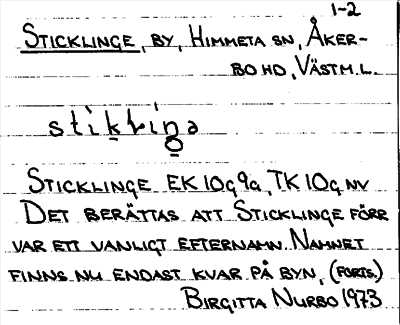 1-2
STICKLINGE, BY, HIMMETA SN, ÅKER-
BO HD, VÄSTM.L.
STICKLINGE EK 10G 9a, TK 10G NV
DET BERÄTTAS ATT STICKLINGE FÖRR
VAR ETT VANLIGT EFTERNAMN. NAMNET
FINNS NU ENDAST KVAR PÅ BYN. (FORTS.)
BIRGITTA NURBO 1973